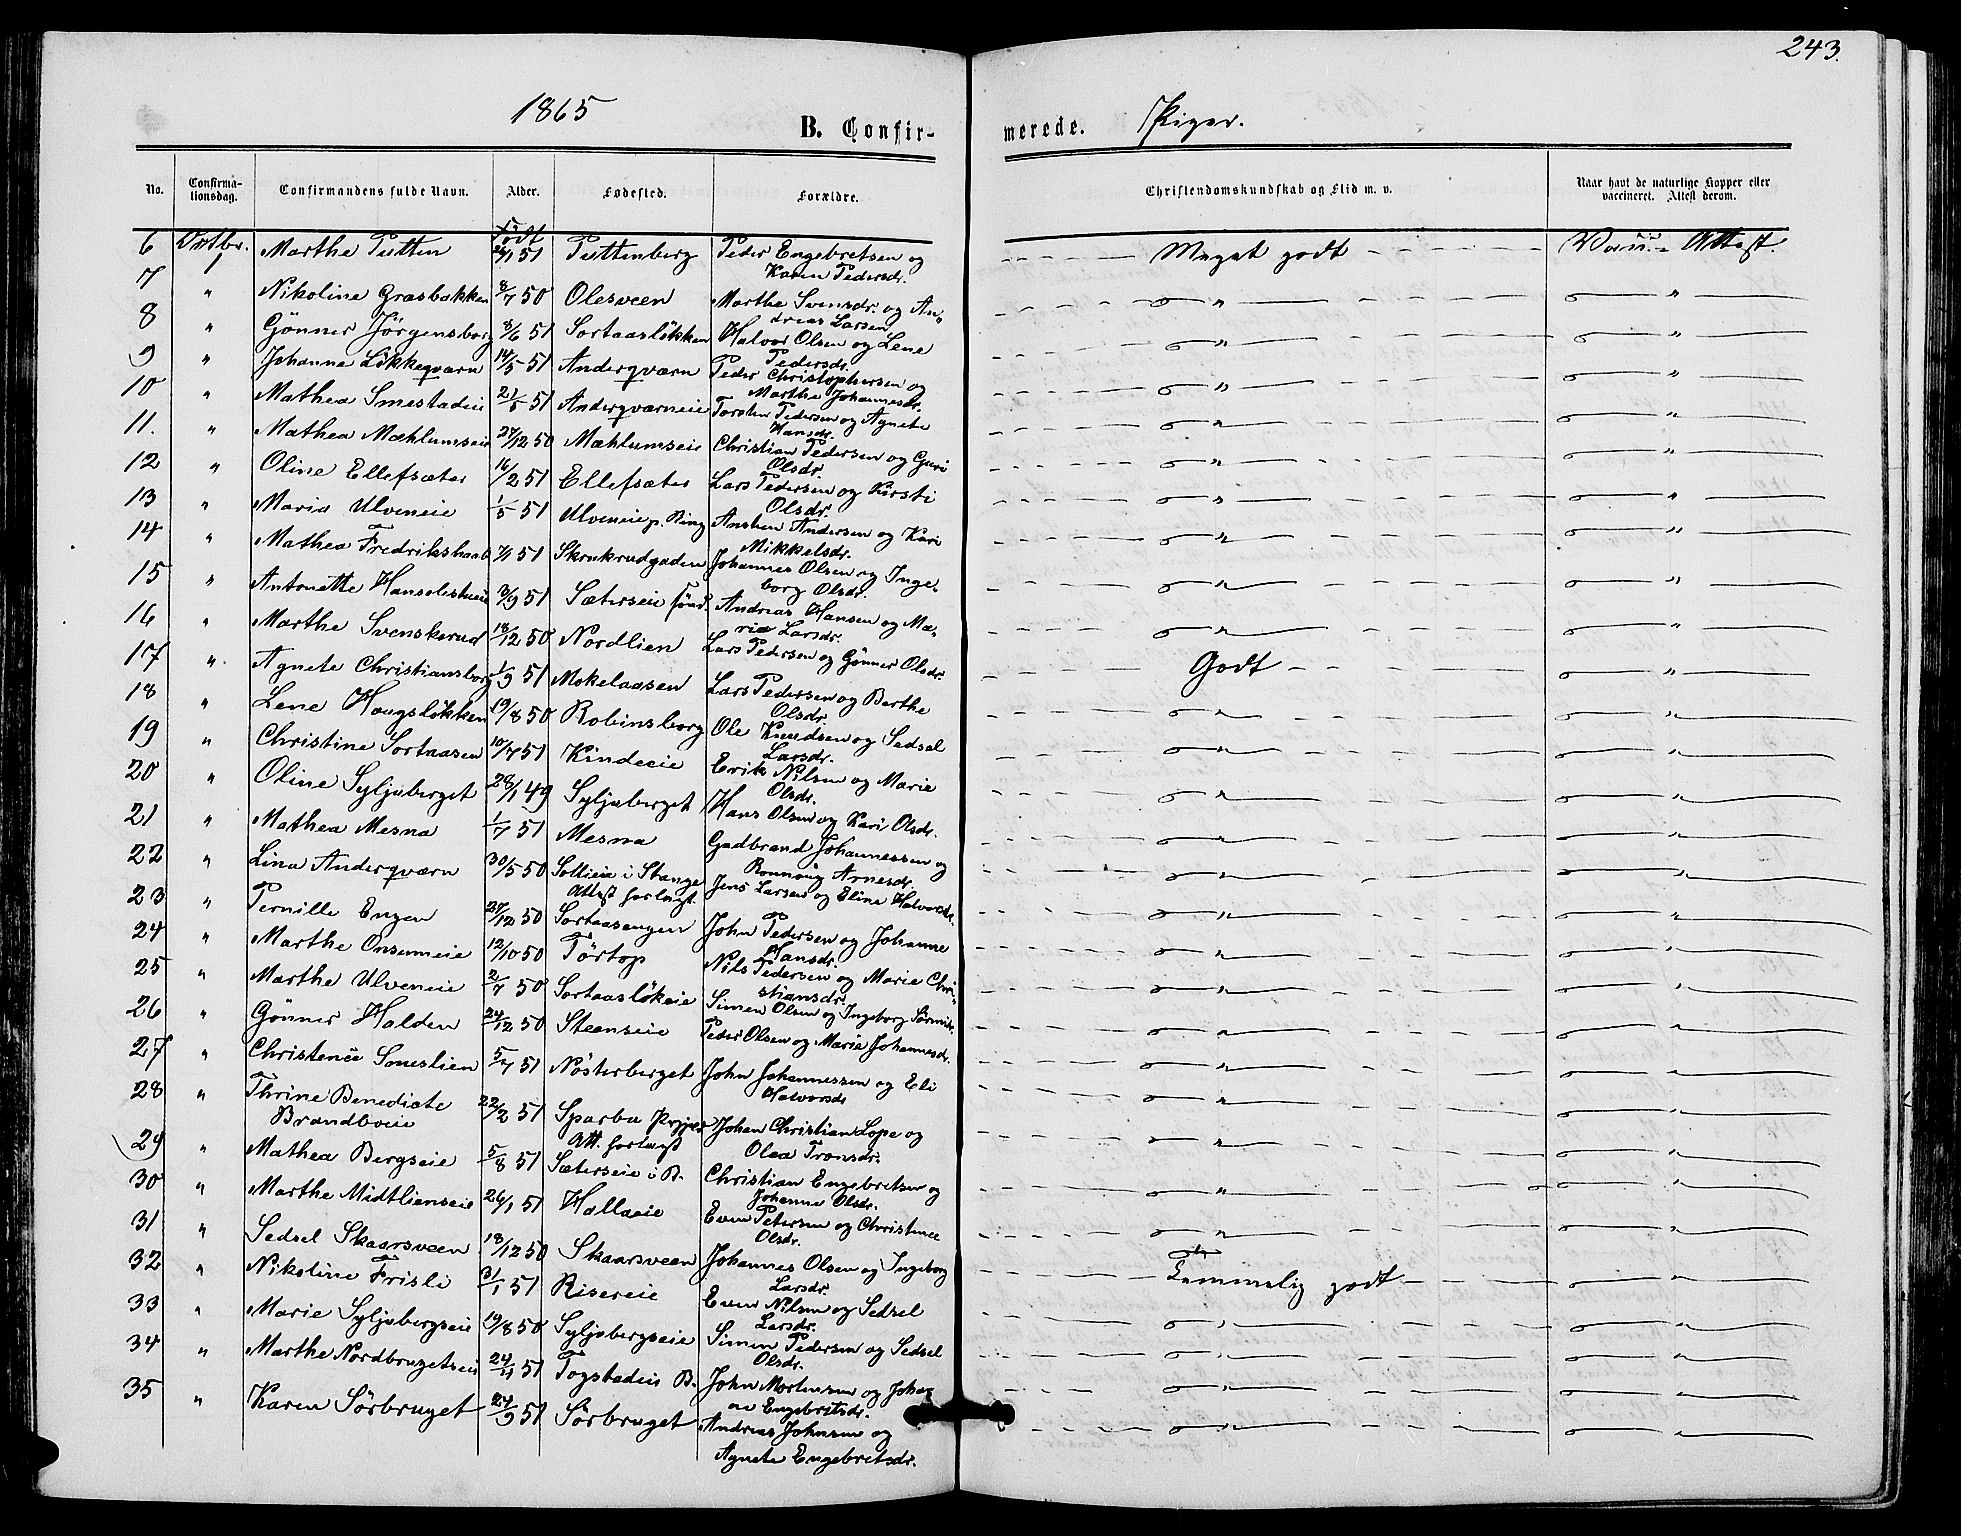 243.
1865
B. Confirmerede. Piger.
No. Confirmationsdag. Confirmandens fulde Navn. Alder. Fødested. Forældre. Christendomskundskab og Flid m. v. Naar havt de naturlige Kopper eller vaccineret. Attest derom.
Födt
6 Octbr. 1 Marthe Tutten 51 Tuttenberg Peder Engebretsen og Karen Pedersdr. Meget godt Vacc. Attest.
7 " Nikoline Græsbakken 8/7 50 Olesveen Marthe Svensdr. og Andreas Larsen " "
8 " Gönner Jörgensborg 8/6 51 Sortaaslökken Halvor Olsen og Lene Pedersdr. " "
9 " Johanne Lökkeqværn 14/5 51 Anderqværn Peder Christophersen og Marthe Johannesdr. " "
10 " Mathea Smestadeie 21/5 51 Anderqværneie Torsten Pedersen og Agnete Hansdr. " "
11. " Mathea Mæhlumseie 27/12 50 Mæhlumseie Christian Pedersen og Guri Olsdr. " "
12 " Oline Ellefsæter 16/2 51 Ellefsæter Lars Pedersen og Kirsti Olsdr. " "
13 " Maria Ulveneie 1/5 51 Ulveneie p. Ring Ansten Andersen og Kari Mikkelsdr. " "
14 " Mathea Fredrikshaab 51 Skrukrudgaden Johannes Olsen og Ingeborg Olsdr. " "
15 " Antonette Hansolistueie 3/9 51 Sæterseie Andreas Hansen og Maria Larsdr. " "
16 " Marthe Svenskerud 18/12 50 Nordlien Lars Pedersen og Gönner Olsdr. " "
17 " Agnete Christiansborg 1/9 51 Mokelaasen Lars Pedersen og Berthe Olsdr. Godt "
18 " Lene Haugslökken 19/8 50 Robinsborg Ole Knudsen og Sedsel Larsdr. " "
19 " Christine Sortaasen 10/7 51 Kindeeie Erik Nilsen og Marie Olsdr. " "
20 " Oline Syljuberget 28/1 49 Syljuberget Hans Olsen og Kari Olsdr. " "
21 " Mathea Mesna 1/7 51 Mesna Gudbrand Johannessen og Ronnaug Arnesdr. " "
22 " Lina Anderqværn 30/5 50 Sollieie i Stange Attest forlagt Jens Larsen og Eline Halvorsdr. " "
23 " Pernille Engen 27/12 50 Sortaasengen John Pedersen og Johanne Hansdr. " "
24 " Marthe Onsumeie 12/10 50 Törtop Nils Pedersen og Marie Christiansdr. " "
25 " Marthe Ulveneie 2/7 50 Sortaaslökeie Simen Olsen og Ingeborg " "
26 " Gönner Halden 24/12 50 Steenseie Peder Olsen og Maria Johannesdr. " "
27 " Christence Smestlien 5/7 51 Nösterberget John Johannessen og Eli Halvorsdr " "
28 " Thrine Benedicte Brandboeie 22/2 51 Sparbu Att. forlagt Johan Christian Lope og Olea Tronsdr. " "
29 " Mathea Bergseie 5/8 51 Sæterseie i B. Christian Engebretsen og Johanne Olsdr. " "
30 " Marthe Midtlienseie 26/1 51 Hallaeie Even Petersen og Christence Olsdr. " "
31 " Sedsel Skaarsveen 18/12 50 Skaarsveen Johannes Olsen og Ingeborg Larsdr. " "
32 " Nikoline Frisli 31/1 51 Risereie Even Nilsen og Sedsel Larsdr. Temmelig godt "
33 " Marie Syljubergseie 19/8 50 Syljubergseie Simen Pedersen og Sedsel Olsdr. " "
34 " Marthe Nordbrugetseie 51 Togstadeie B. John Mortensen og Johanne Engebretsdr. " "
35 " Karen Sörbruget 24/9 51 Sörbruget Andreas Johnsen og Agnete Engebretsdr. " "